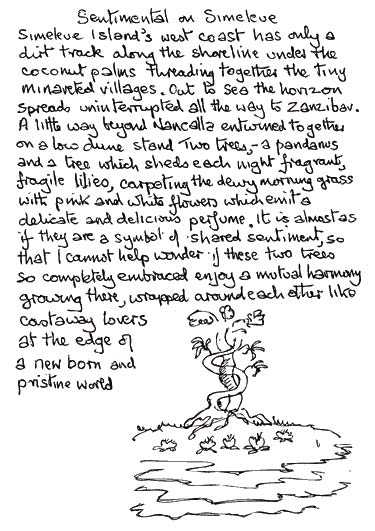 Sentimental on Simeleue
Simeleue Island's west coast has only a
dirt track along the shoreline under the
coconut palms threading together the tiny
minareted villages. Out to sea the horizon
spreads uninterrupted all the way to Zanzibar.
A little way beyond Nancalla entwined together
on a low dune stand two trees,- a pandanus
and a tree which sheds each night fragrant,
fragile lilies, carpeting the dewy morning grass
with pink and white flowers which emit a
delicate and delicious perfume. It is almost as
if they are a symbol of shared sentiment, so
that I cannot help wonder if these two trees
so completely embraced enjoy a mutual harmony
growing there, wrapped around each other like
castaway lovers
at the edge of
a new born and
pristine world